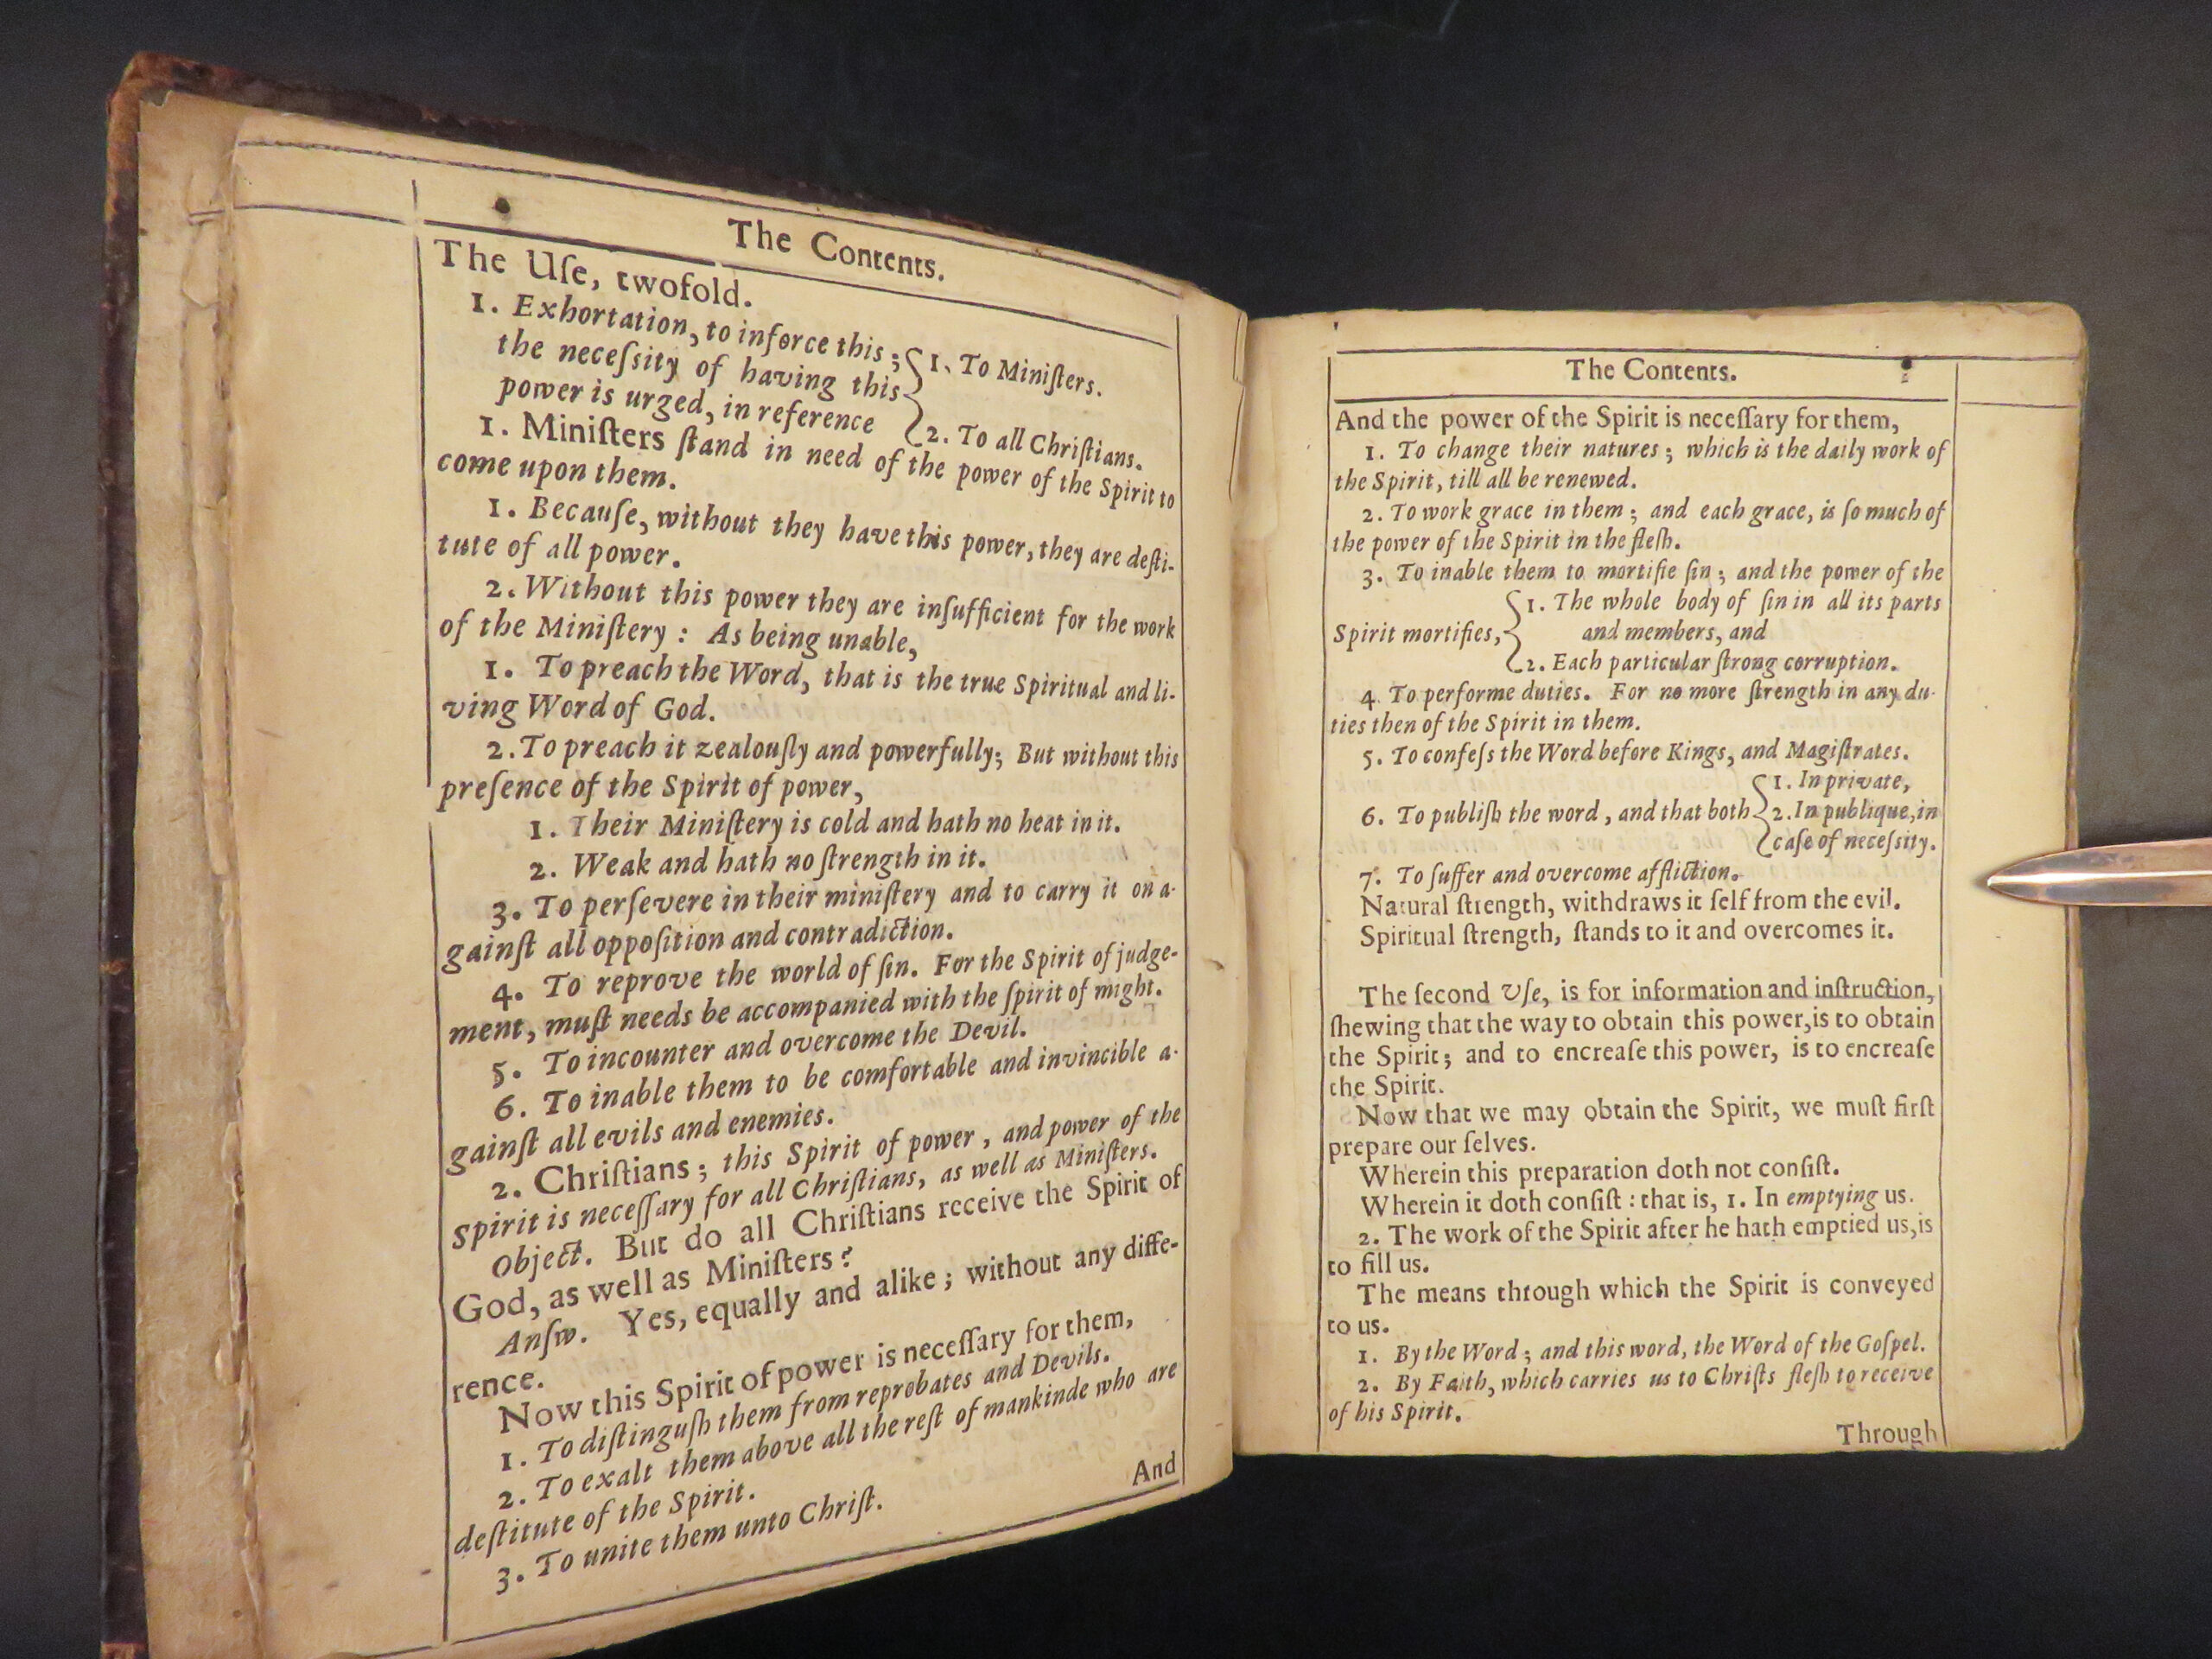 The Contents.
The Uſe, twofold.
1. Exhortation, to inforce this ; 1. To Miniſters.
the neceſsity of having this
power is urged, in reference 2. To all Chriſtians.
1. Miniſters ſtand in need of the power of the Spirit to
come upon them.
1. Becauſe, without they have this power, they are deſti-
tute of all power.
2. Without this power they are inſufficient for the work
of the Miniſtery : As being unable,
1. To preach the Word, that is the true Spiritual and li-
ving Word of God.
2. To preach it zealouſly and powerfully; But without this
preſence of the Spirit of power,
1. Their Miniſtery is cold and hath no heat in it.
2. Weak and hath no ſtrength in it.
3. To perſevere in their miniſtery and to carry it on a-
gainſt all oppoſition and contradiction.
4. To reprove the world of ſin. For the Spirit of judge-
ment, muſt needs be accompanied with the ſpirit of might.
5. To incounter and overcome the Devil.
6. To inable them to be comfortable and invincible a-
gainſt all evils and enemies.
2. Chriſtians ; this Spirit of power, and power of the
Spirit is neceſſary for all Chriſtians, as well as Miniſters.
Object. But do all Chriſtians receive the Spirit of
God, as well as Miniſters ?
Anſw. Yes, equally and alike ; without any diffe-
rence.
Now this Spirit of power is neceſſary for them,
1. To diſtinguſh them from reprobates and Devils.
2. To exalt them above all the reſt of mankinde who are
deſtitute of the Spirit.
3. To unite them unto Chriſt.
And
The Contents.
And the power of the Spirit is neceſſary for them,
1. To change their natures ; which is the daily work of
the Spirit, till all be renewed.
2. To work grace in them ; and each grace, is ſo much of
the power of the Spirit in the fleſh.
3. To inable them to mortifie ſin ; and the power of the
1. The whole body of ſin in all its parts
Spirit mortifies, and members, and
2. Each particular ſtrong corruption.
4. To performe duties. For no more ſtrength in any du-
ties then of the Spirit in them.
5. To confeſs the Word before Kings, and Magiſtrates.
1. In private,
6. To publiſh the word, and that both 2. In publique, in
caſe of neceſsity.
7. To ſuffer and overcome affliction.
Natural ſtrength, withdraws it ſelf from the evil.
Spiritual ſtrength, ſtands to it and overcomes it.
The ſecond Uſe, is for information and inſtruction,
ſhewing that the way to obtain this power, is to obtain
the Spirit; and to encreaſe this power, is to encreaſe
the Spirit.
Now that we may obtain the Spirit, we muſt firſt
prepare our ſelves.
Wherein this preparation doth not conſiſt.
Wherein it doth conſiſt : that is, 1. In emptying us.
2. The work of the Spirit after he hath emptied us, is
to fill us.
The means through which the Spirit is conveyed
to us.
1. By the Word ; and this word, the Word of the Goſpel.
2. By Faith, which carries us to Chriſts fleſh to receive
of his Spirit.
Through